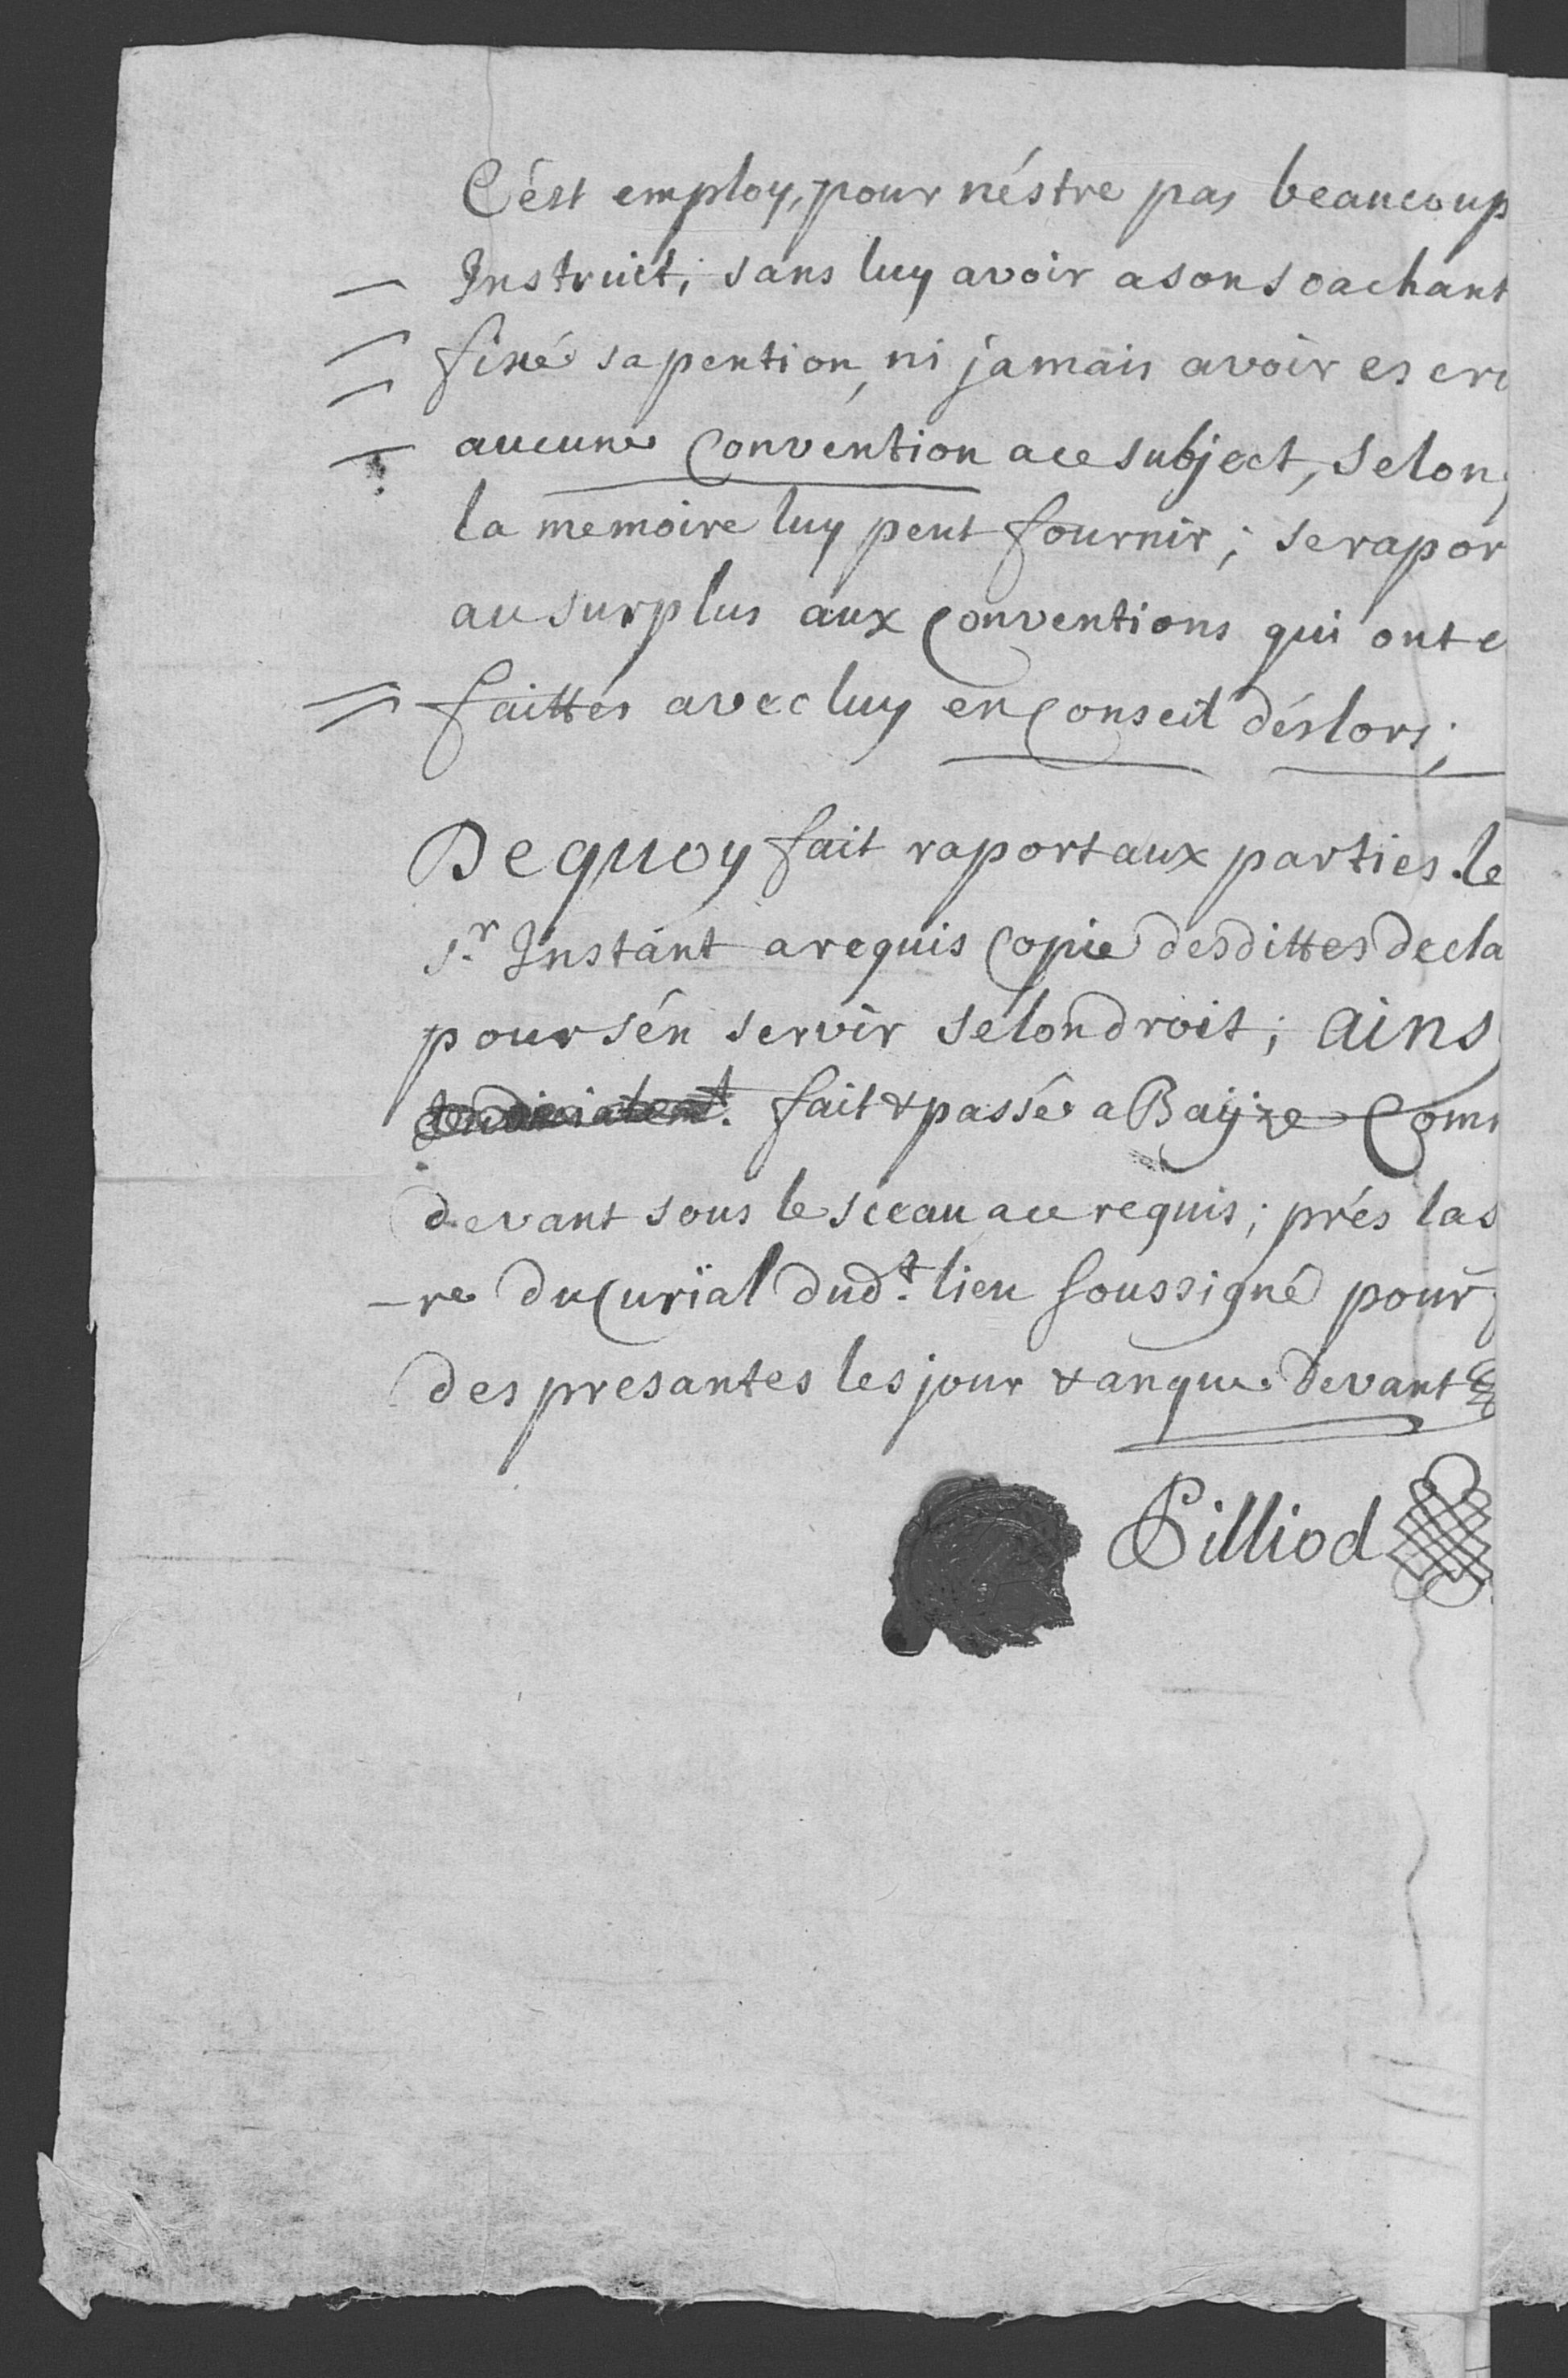 C'ést employ, pour n'éstre pas beaucoup
Instruict, sans luy avoir a son scachant
fixé sa pention, ni jamais avoir escri
aucune Convention a ce subject, selon
la memoire luy peut fournir; se rapor
au surplus aux Conventions qui ont e
faittes avec luy en Conseil déslors;
De quoy fait raport aux parties. le
Sr. Instant a requis Copie desdittes decla
pour s'én servir selon droit; ains
fait & passé a Bayze Com
devant sous le sceau a ce requis; prés la s
-re du Curial dudt. lieu soussigné pour
des presantes les jour & an que devant
Pilliod